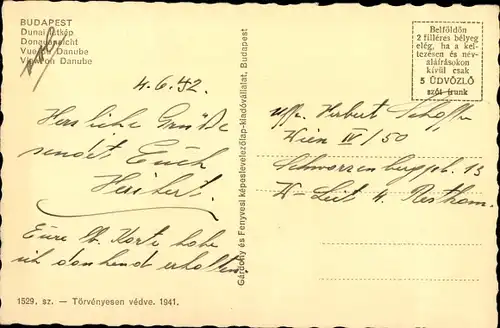 BUDAPEST
Dunai látkép
Donauansicht
Vue du Danube
View on Danube
4.6.42.
Herzliche Grüße
sendet Euch
Heribert.
Eure lb. Karte habe
ich dankend erhalten.
1529. sz. — Törvényesen védve. 1941.
Gárdony és Fenyvesi képeslevelezőlap-kiadóvállalat, Budapest
Belföldön
2 filléres bélyeg
elég, ha a kel-
tezésen és név-
aláírásokon
kívül csak
5 ÜDVÖZLŐ
szót írunk
Herbert
Wien IV/50
13